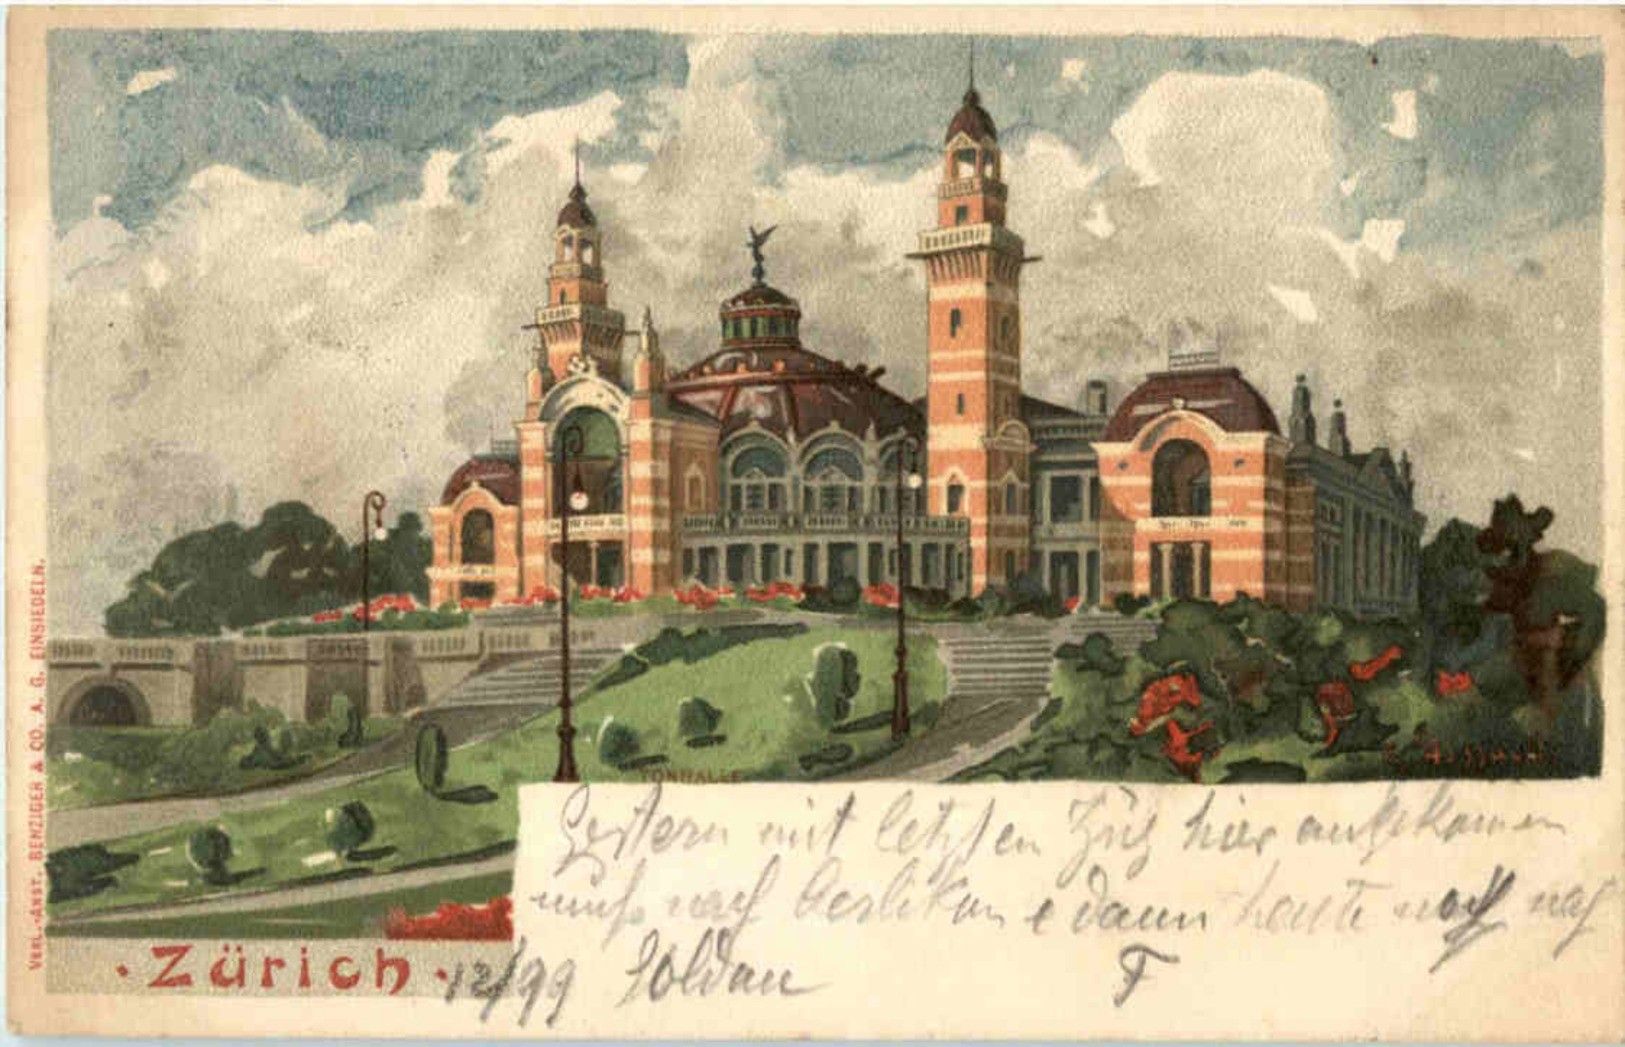 VERL.-ANST. BENZIGER & CO. A. G. EINSIEDELN.
TONHALLE
Gestern mit letzten Zug hier angekomen
muss nach Oerlikon & dann heute noch nach
· Zürich · 12/99 Soldau F